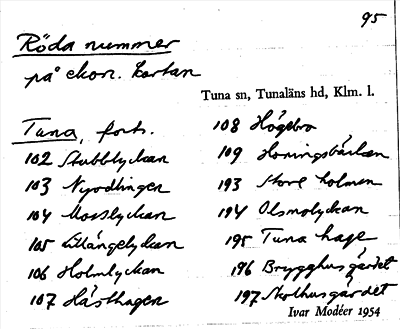 95
Röda nummer
på ekon. kartan
Tuna sn, Tunaläns hd, Klm. l.
Tuna, forts.
102 Stubblyckan
103 Nyodlingen
104 Mosslyckan
105 Lillängelyckan
106 Holmlyckan
107 Hästhagen
108 Högebro
109 Horningsbäcken
193 Stora holmen
194 Olsmolyckan
195 Tuna hage
196 Brygghusgärdet
197 Stolhusgärdet
Ivar Modéer 1954